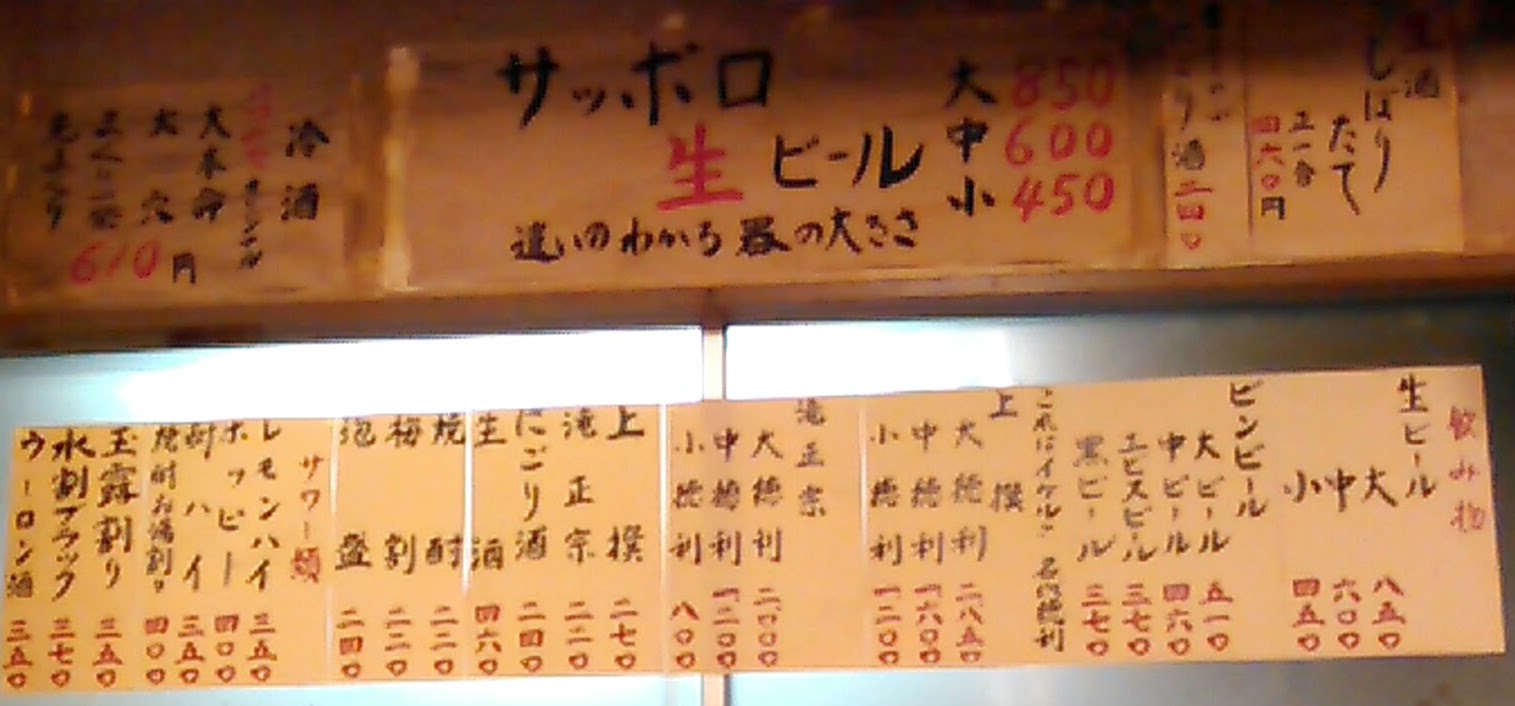 サッポロ
生ビール
大850
中600
小450
違いのわかる器の大きさ
生酒
しぼり
たて
四六〇円
にごり酒二四〇
冷酒
大本命
大穴
610円
飲み物
生ビール
大 八五〇
中 六〇〇
小 四五〇
ビンビール
大ビール 五一〇
中ビール 四六〇
エビスビール 三七〇
黒ビール 三七〇
これはイケル
上撰
大徳利 二八五〇
中徳利 一六〇〇
小徳利 一二〇〇
滝正宗
大徳利 二〇〇〇
中徳利 一二〇〇
小徳利 八〇〇
上撰 二七〇
滝正宗 二二〇
にごり酒 二四〇
生酒 四六〇
焼酎 二二〇
梅割 二二〇
泡盛 二四〇
サワー類
レモンハイ 三五〇
ホッピー 四〇〇
酎ハイ 三五〇
焼酎お湯割り 四〇〇
玉露割り 三五〇
水割ブラック 三七〇
ウーロン酒 三五〇